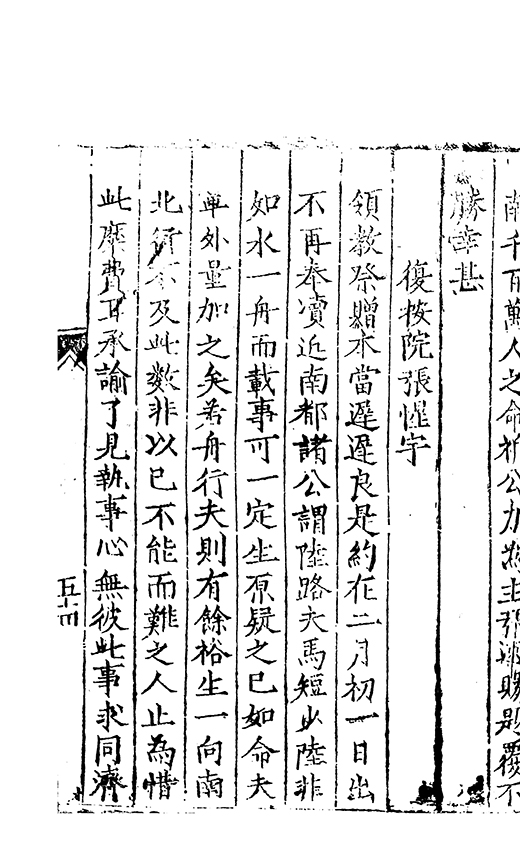 南千百萬人之命祈公加為主張邀賜題覆不
勝幸甚
復按院張惺宇
領教祭贈本當遲遲良是約在二月初一日出
不再奉瀆近南都諸公謂陸路夫馬短少陸非
如水一舟而載事可一定生原疑之已如命夫
單外量加之矣若舟行夫則有餘裕生一向南
北行不及此數非以已不能而難之人止為惜
此糜費耳承諭了見執事心無彼此事求同濟
五十四